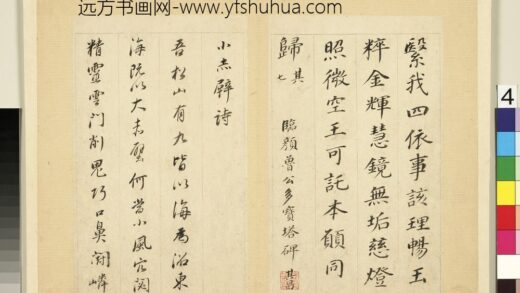 远方书画网-www.yfshuhua.com
繄我四依事該理暢玉
粹金輝慧鏡無垢慈燈
照微空王可託本願同
歸其七
臨顏魯公多寶塔碑
小赤壁詩
吾松山有九皆以海為沼東
海既以大赤壁何當小風宕闊
精靈雲門削鬼巧口鼻開嶙
4